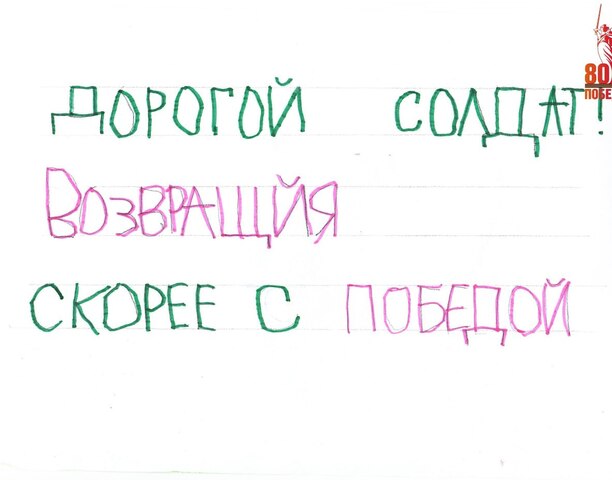 ДОРОГОЙ СОЛДАТ!
ВОЗВРАЩЙЯ
СКОРЕЕ С ПОБЕДОЙ
80
ПОБЕ